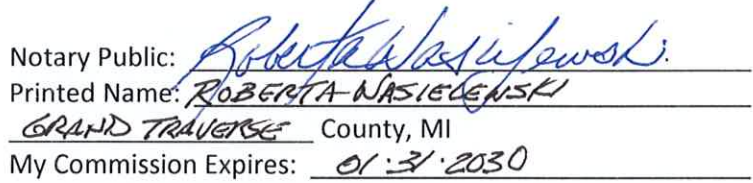 Notary Public: Roberta Wasielewski
Printed Name: ROBERTA WASIELEWSKI
GRAND TRAVERSE County, MI
My Commission Expires: 01·31·2030